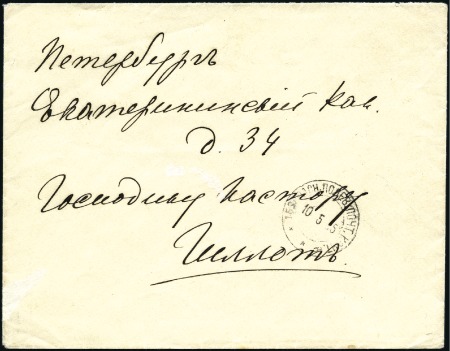 Петербургъ
Екатерининскій кан.
д. 34
Господину Пастору
Гиллотъ
10 5